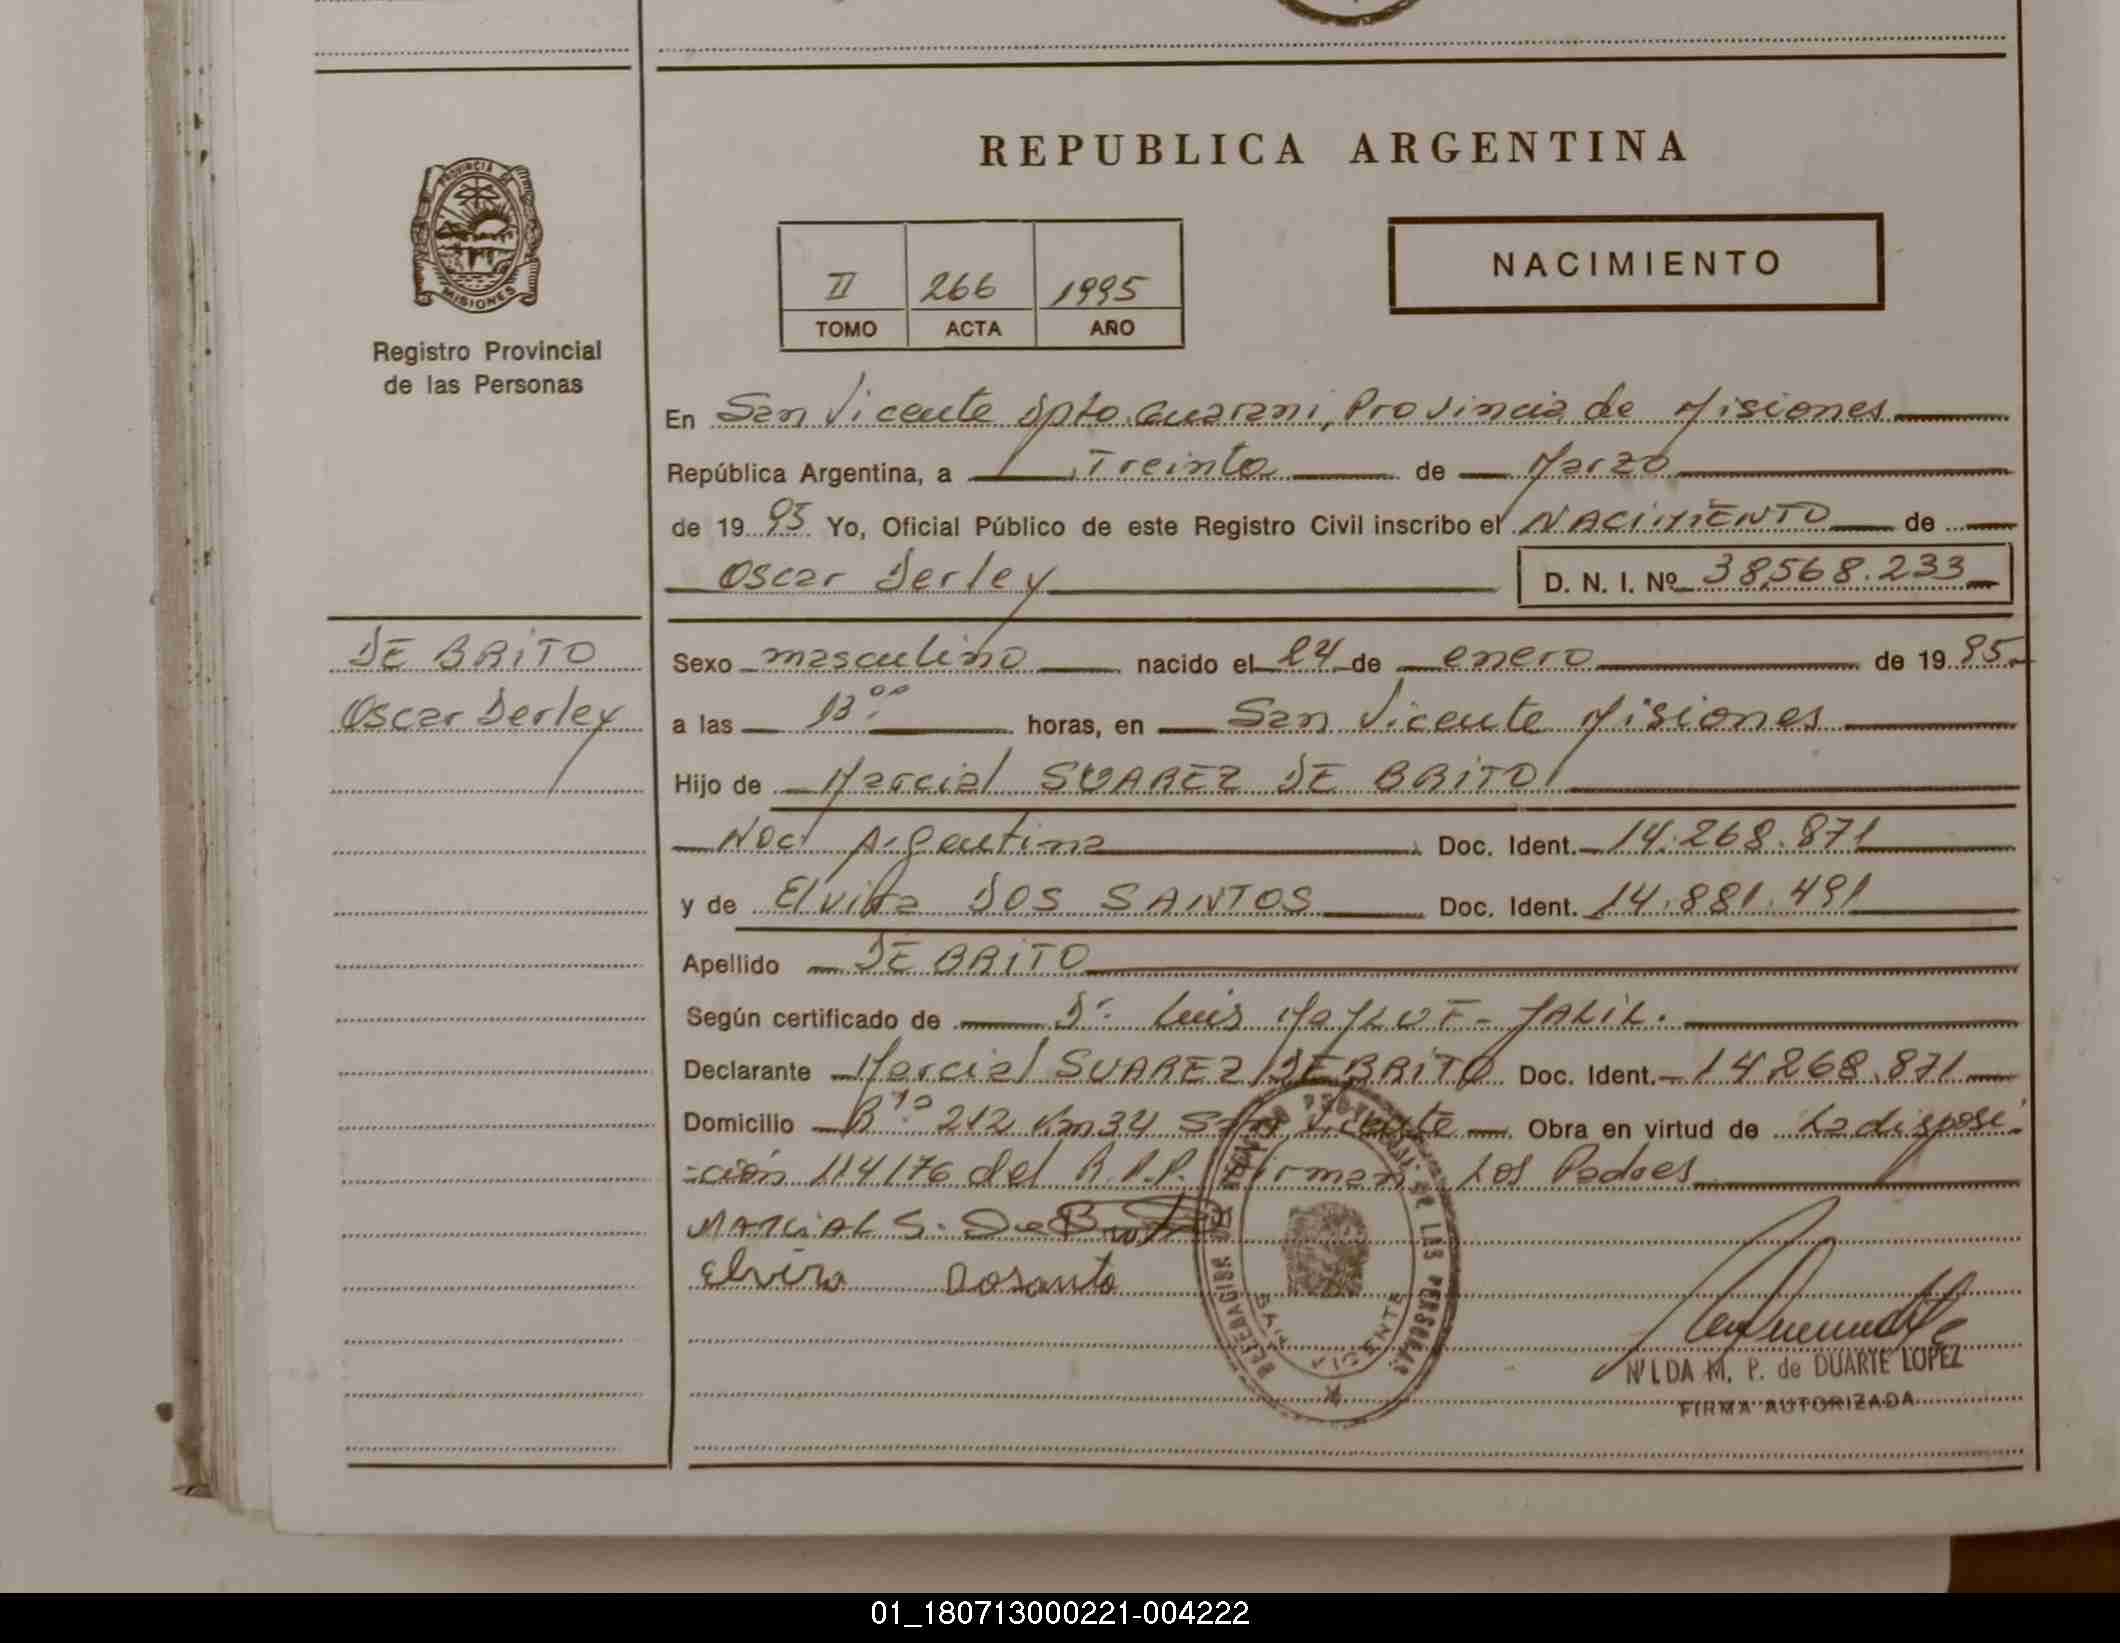 REPUBLICA ARGENTINA
PROVINCIA DE
MISIONES
Registro Provincial
de las Personas
II 266 1995
TOMO ACTA AÑO
NACIMIENTO
En San Vicente Dpto. Guarani, Provincia de Misiones
República Argentina, a Treinta de Marzo
de 19 95 Yo, Oficial Público de este Registro Civil inscribo el NACIMIENTO de
Oscar Derley D. N. I. Nº 38.568.233
DE BRITO
Oscar Derley
Sexo masculino nacido el 24 de enero de 19 95
a las 13:00 horas, en San Vicente Misiones
Hijo de Marcial SUAREZ DE BRITO
Nac. Argentina Doc. Ident. 14.268.871
y de Elvira DOS SANTOS Doc. Ident. 14.881.491
Apellido DE BRITO
Según certificado de Dr. Luis JALIL.
Declarante Marcial SUAREZ DE BRITO Doc. Ident. 14.268.871
Domicilio Rta 212 Km 34 San Vicente Obra en virtud de La disposi-
-ción 114/76 del R.P.P. Firman Los Padres
MARCIAL S. De Brito
Elvira Dosanto
DELEGACION
DE LAS PERSONAS
SAN VICENTE
NILDA M. P. de DUARTE LOPEZ
FIRMA AUTORIZADA
01_180713000221-004222